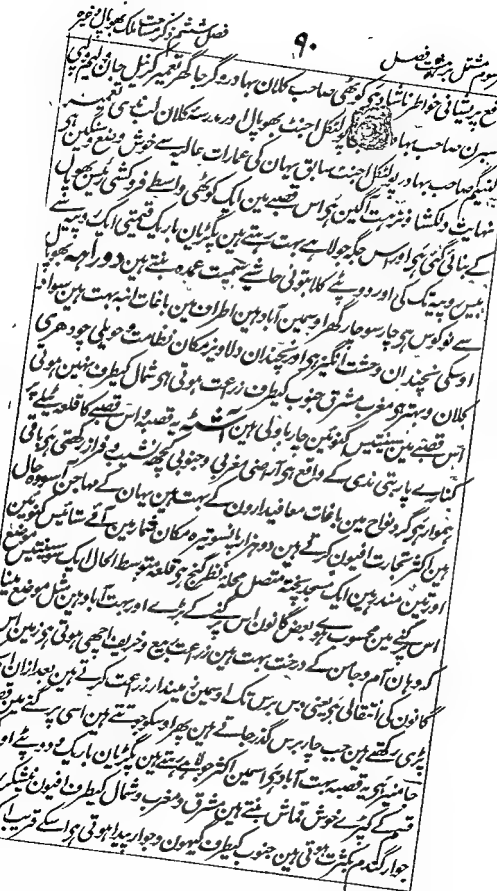 فصل ششم ذکر مساحت ملک بھوپال وغیرہ
۹۰
سوم مشتمل بر ہشت فصل
رفع پریشانی خواطر ناشاد ہی کوٹھی صاحب کلان بہادر و گرجا گھر تعمیر کرنیل جان ولیم
سبرن صاحب بہادر پولٹکل اجنٹ بھوپال اور مدرسہ کلان لب ندی تعمیر
صاحب بہادر پولٹکل اجنٹ سابق یہان کی عمارات عالیہ سے خوش وضع و سنگین ہی
نہایت دلکشا و نزہت آگین ہی اس قصبے مین ایک کوٹھی واسطے فروکشی رئیس بھوپال
کے بنائی گئی ہی اور اس جگہ جولاہے بہت رہتے ہین پگڑیان باریک قیمتی ایک روپیہ سے
بیس روپیہ تک کی اور دوپٹے کلابتونی حاشیے سمیت عمدہ بنتے ہین دوراہہ بھوپال
سے نو کوس ہی چار سو چار گھر اوسمین آباد ہین اطراف مین باغات انبہ بہت ہین سواد
اوسکی نچندان وحشت انگیز ہی اور نچندان دلاویز مکان نظامت و حویلی چودھری
کلان و بہتر ہی مغرب مشرق جنوب کیطرف زراعت ہوتی ہی شمال کیطرف نہین ہوتی
اس قصبے مین سینتیس کنوئین چار باولی ہین آشٹہ یہ قصبہ و اس قصبے کا قلعہ ٹیلے پر
کنارے پاربتی ندی کے واقع ہی آراضی غربی و جنوبی کچھ نشیب و فراز رکھتی ہی باقی
ہموار ہی گرد و نواح مین باغات معافیدارون کے بہت ہین یہان کے مہاجن آسودہ حال
ہین اکثر تجارت افیون کرتے ہین دو ہزار پانسو تیرہ مکان شمار مین آئے ستائیس کنوئین
اور تین مندر ہین ایک مسجد پختہ متصل محلہ نظر گنج ہی قلعہ متوسط الحال ایک سو سینتیس موضع
اس پرگنے مین محسوب ہی بعض گانون اس پرگنے کے بڑے اور بہت آباد ہین مثل موضع مینا
کہ وہان آم و جامن کے درخت بہت ہین زراعت ربیع و خریف اچھی ہوتی ہی زمین اس
گانون کی انتقالی ہی یعنی دس برس تک اوسمین زمیندار زراعت کرتے ہین بعد ازان
پڑی رکھتے ہین جب چار برس گذر جاتے ہین پھر اوسکو جوتتے ہین اسی پرگنے مین
جامنیر ہی یہ قصبہ بہت آباد ہی اسمین اکثر جولاہے رہتے ہین پگڑیان باریک و دوپٹے اور
قسم کے کپڑے خوش قماش بنتے ہین مشرق و مغرب و شمال کیطرف افیون نیشکر
جوار گندم بکثرت ہوتی ہین جنوب کیطرف گیہون و جوار پیدا ہوتی ہی اسکے قریب